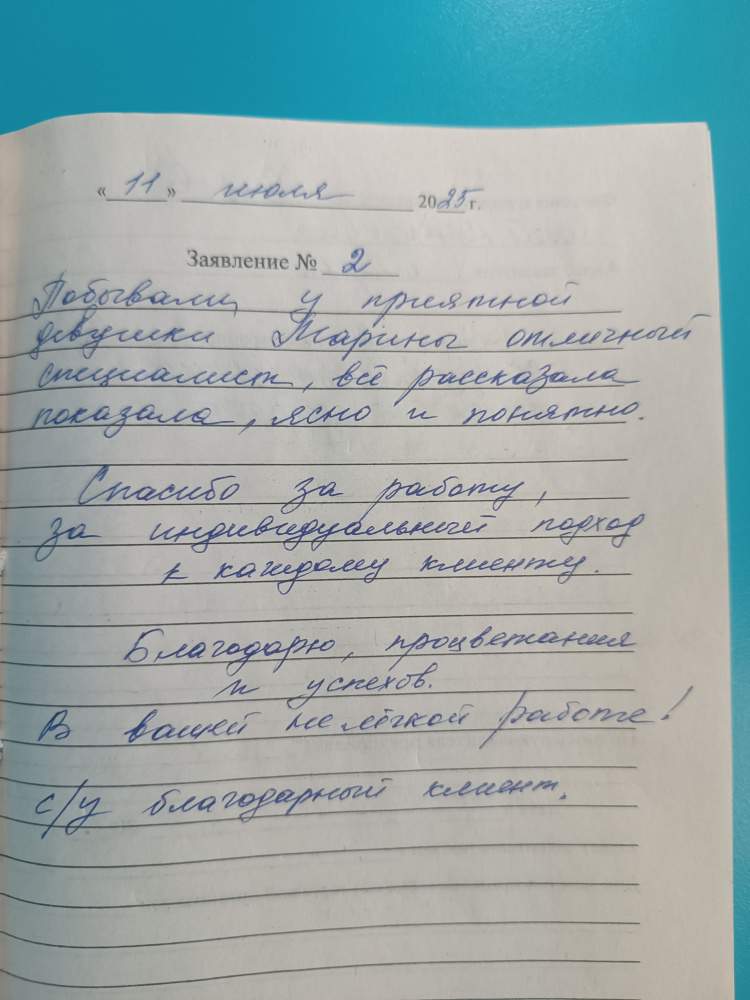 « 11 » июля 2025 г.
Заявление № 2
Побывали, у приятной
девушки Марины отличный
специалист, всё рассказала
показала, ясно и понятно.
Спасибо за работу,
за индивидуальный подход
к каждому клиенту.
Благодарю, процветания
и успехов.
В вашей не лёгкой работе!
с/у благодарный клиент.